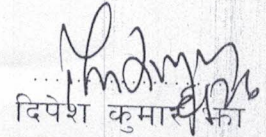 दिपेश कुमार झा